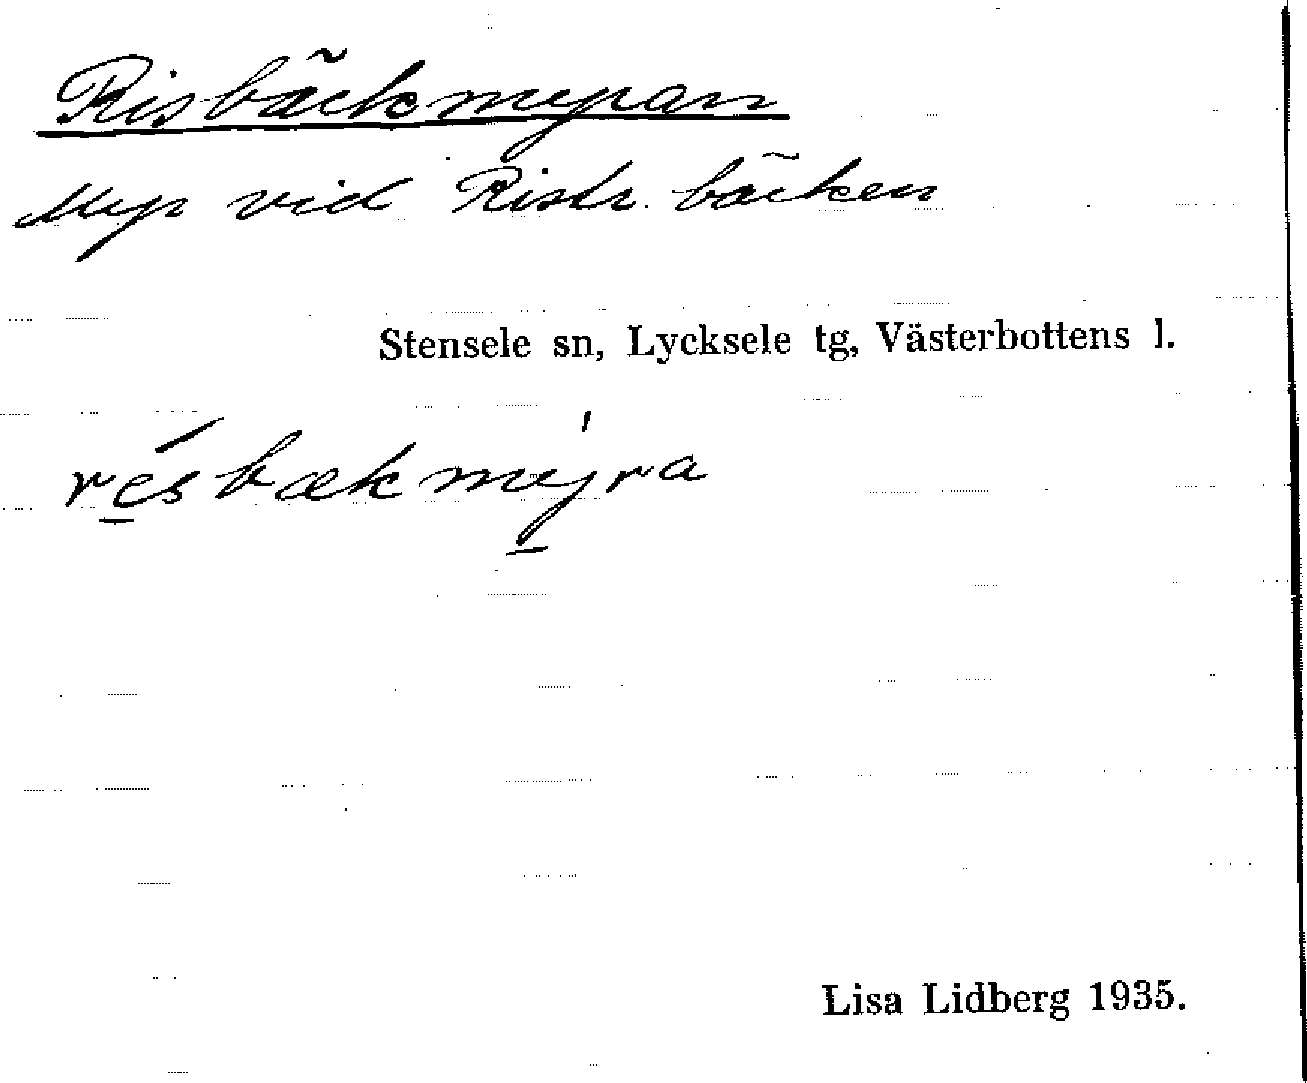 Risbäckmyran
Myr vid Ristr. bäcken
Stensele sn, Lycksele tg, Västerbottens l.
résbækmy̱̍ra
Lisa Lidberg 1935.